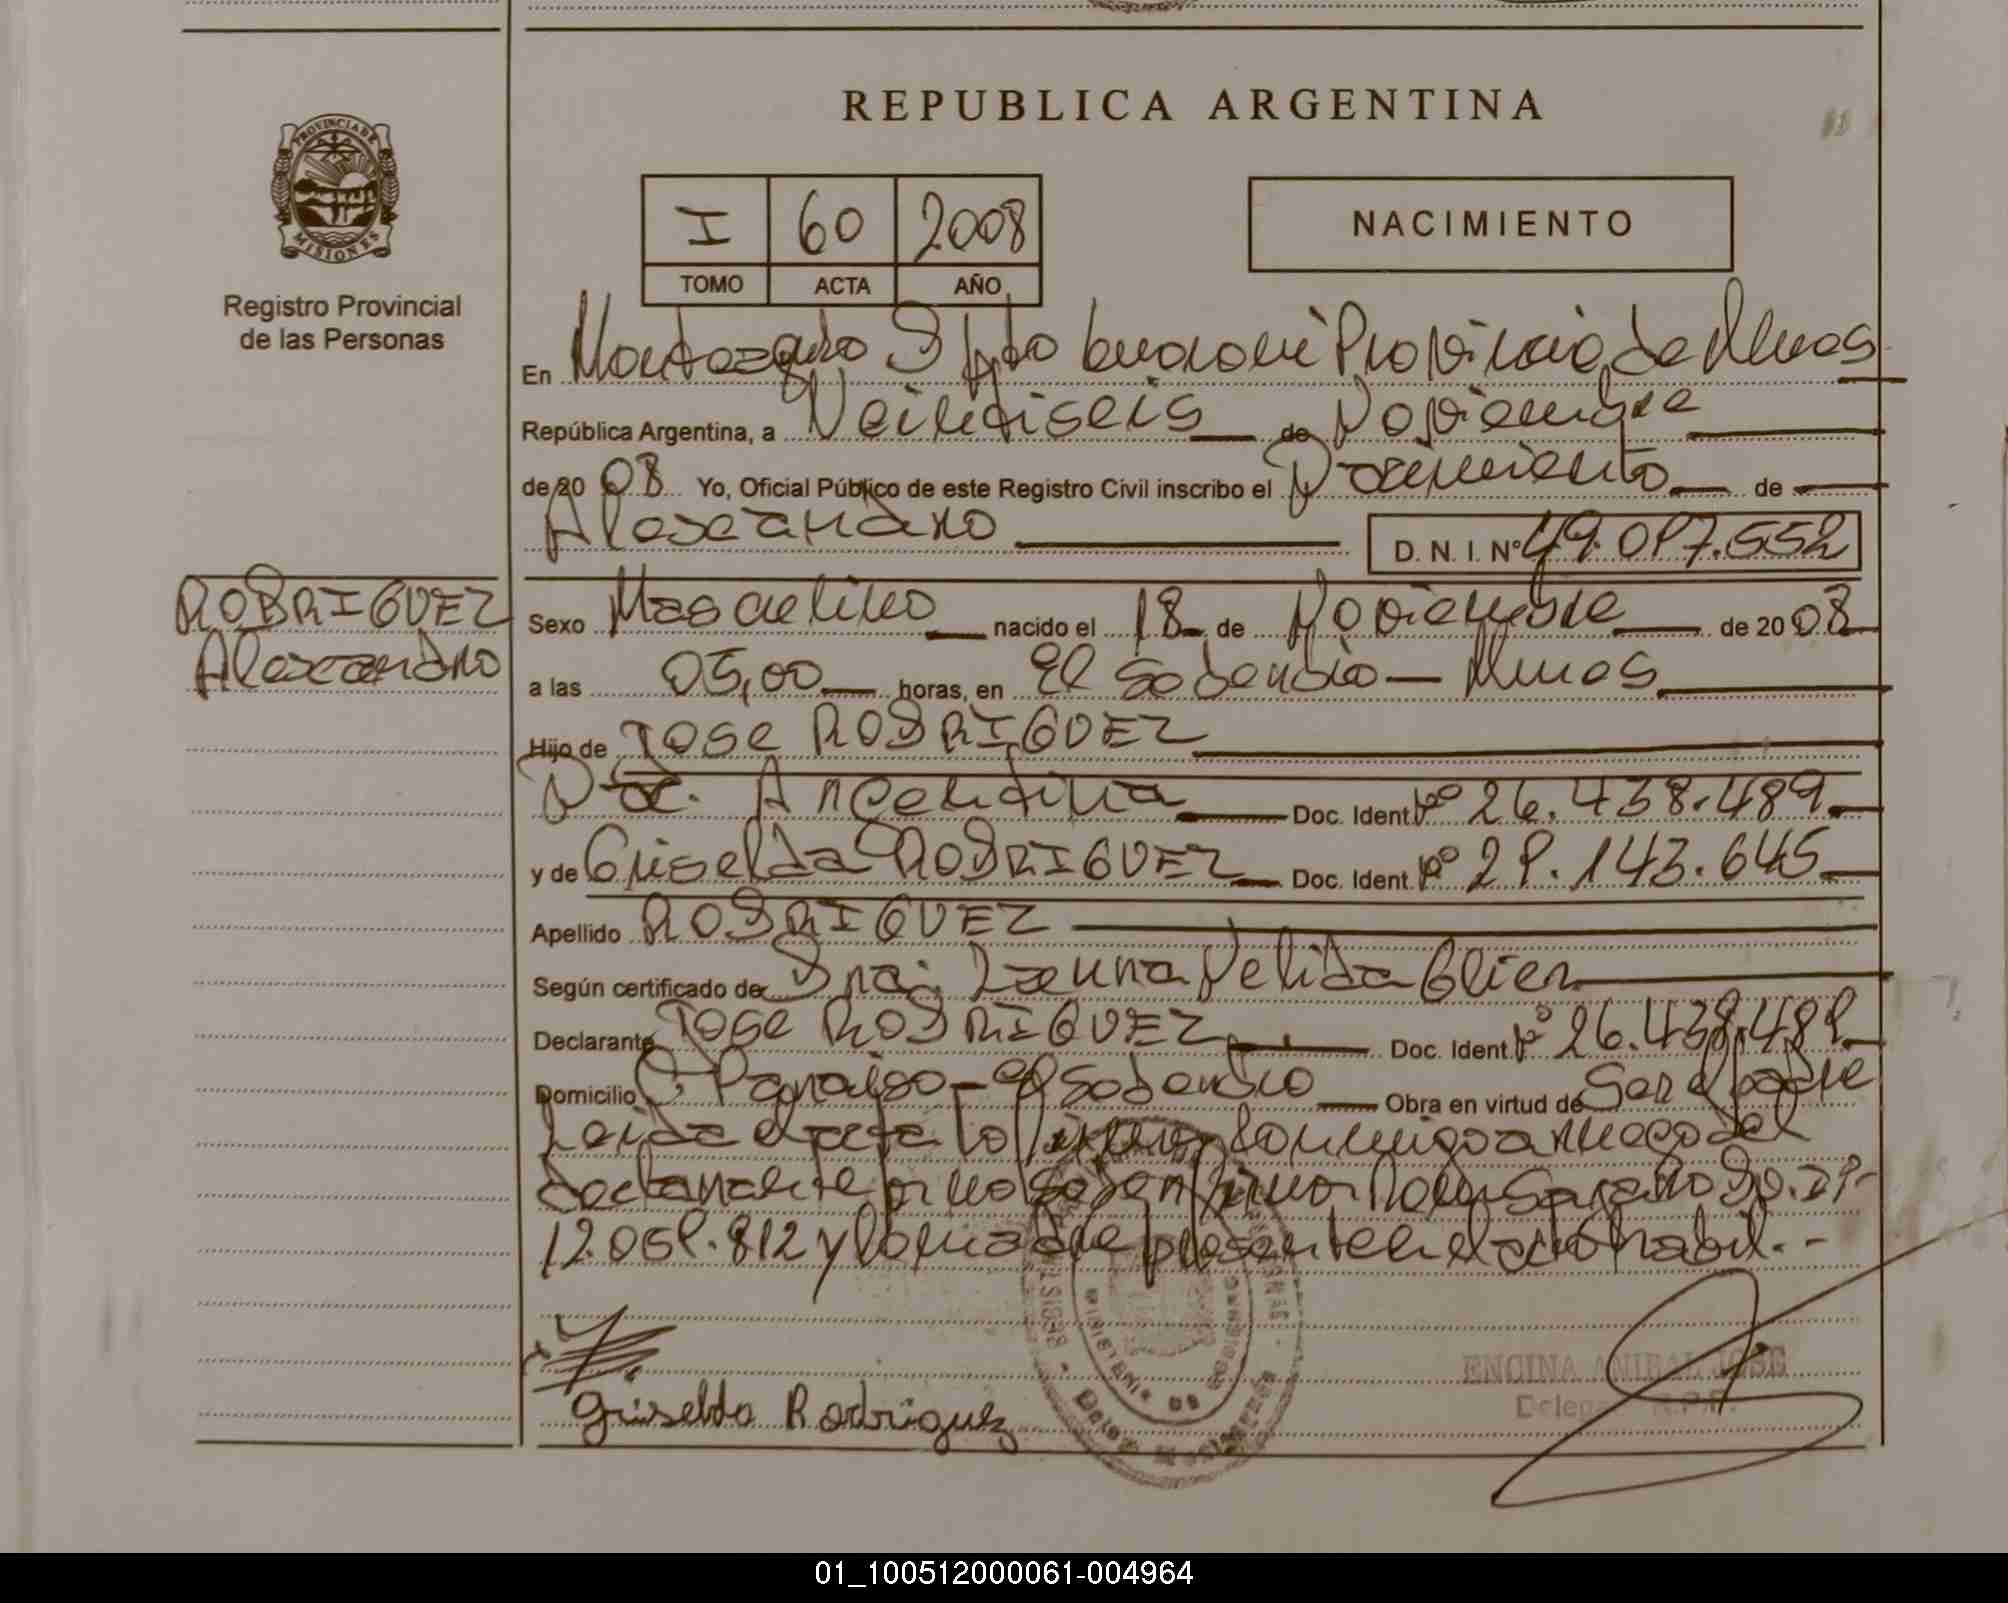 REPUBLICA ARGENTINA
PROVINCIA DE
MISIONES
Registro Provincial
de las Personas
I 60 2008
TOMO ACTA AÑO
NACIMIENTO
En Monteagudo Dpto Guarani Provincia de Mnes
República Argentina, a Veintiseis de Noviembre
de 20 08 Yo, Oficial Público de este Registro Civil inscribo el Nacimiento de
Alexandro
D. N. I. Nº 49.017.552
RODRIGUEZ
Alexandro
Sexo Masculino nacido el 18 de Noviembre de 20 08
a las 05,00 horas, en El Soberbio - Mnes
Hijo de Jose RODRIGUEZ
Nac. Argentina Doc. Ident Nº 26.438.489
y de Griselda RODRIGUEZ Doc. Ident. Nº 29.143.645
Apellido RODRIGUEZ
Según certificado de Sra. Glier
Declarante Jose RODRIGUEZ Doc. Ident. Nº 26.438.489
Domicilio C. Paraiso - El Soberbio Obra en virtud de Ser el padre
Leida el acta lo firma conmigo a ruego del
declarante por no saber firmar
12.059.812 y la madre presente en el acto habil. -
Griselda Rodriguez
ENCINA ANIBAL JOSE
Delega R.P.P.
MISIONES
MINISTERIO DE GOBIERNO
01_100512000061-004964